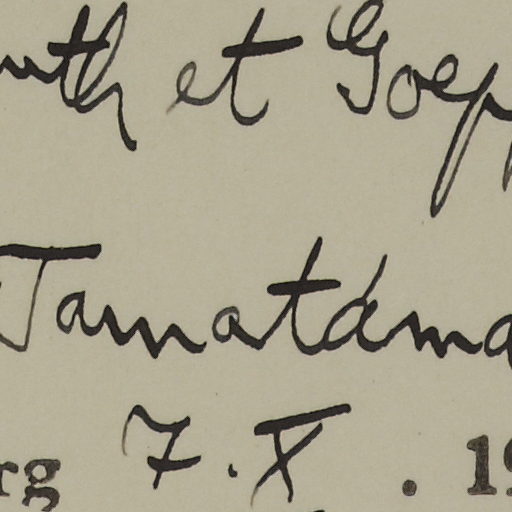 uth et Goep
Tamatáma
rg 7. X . 19